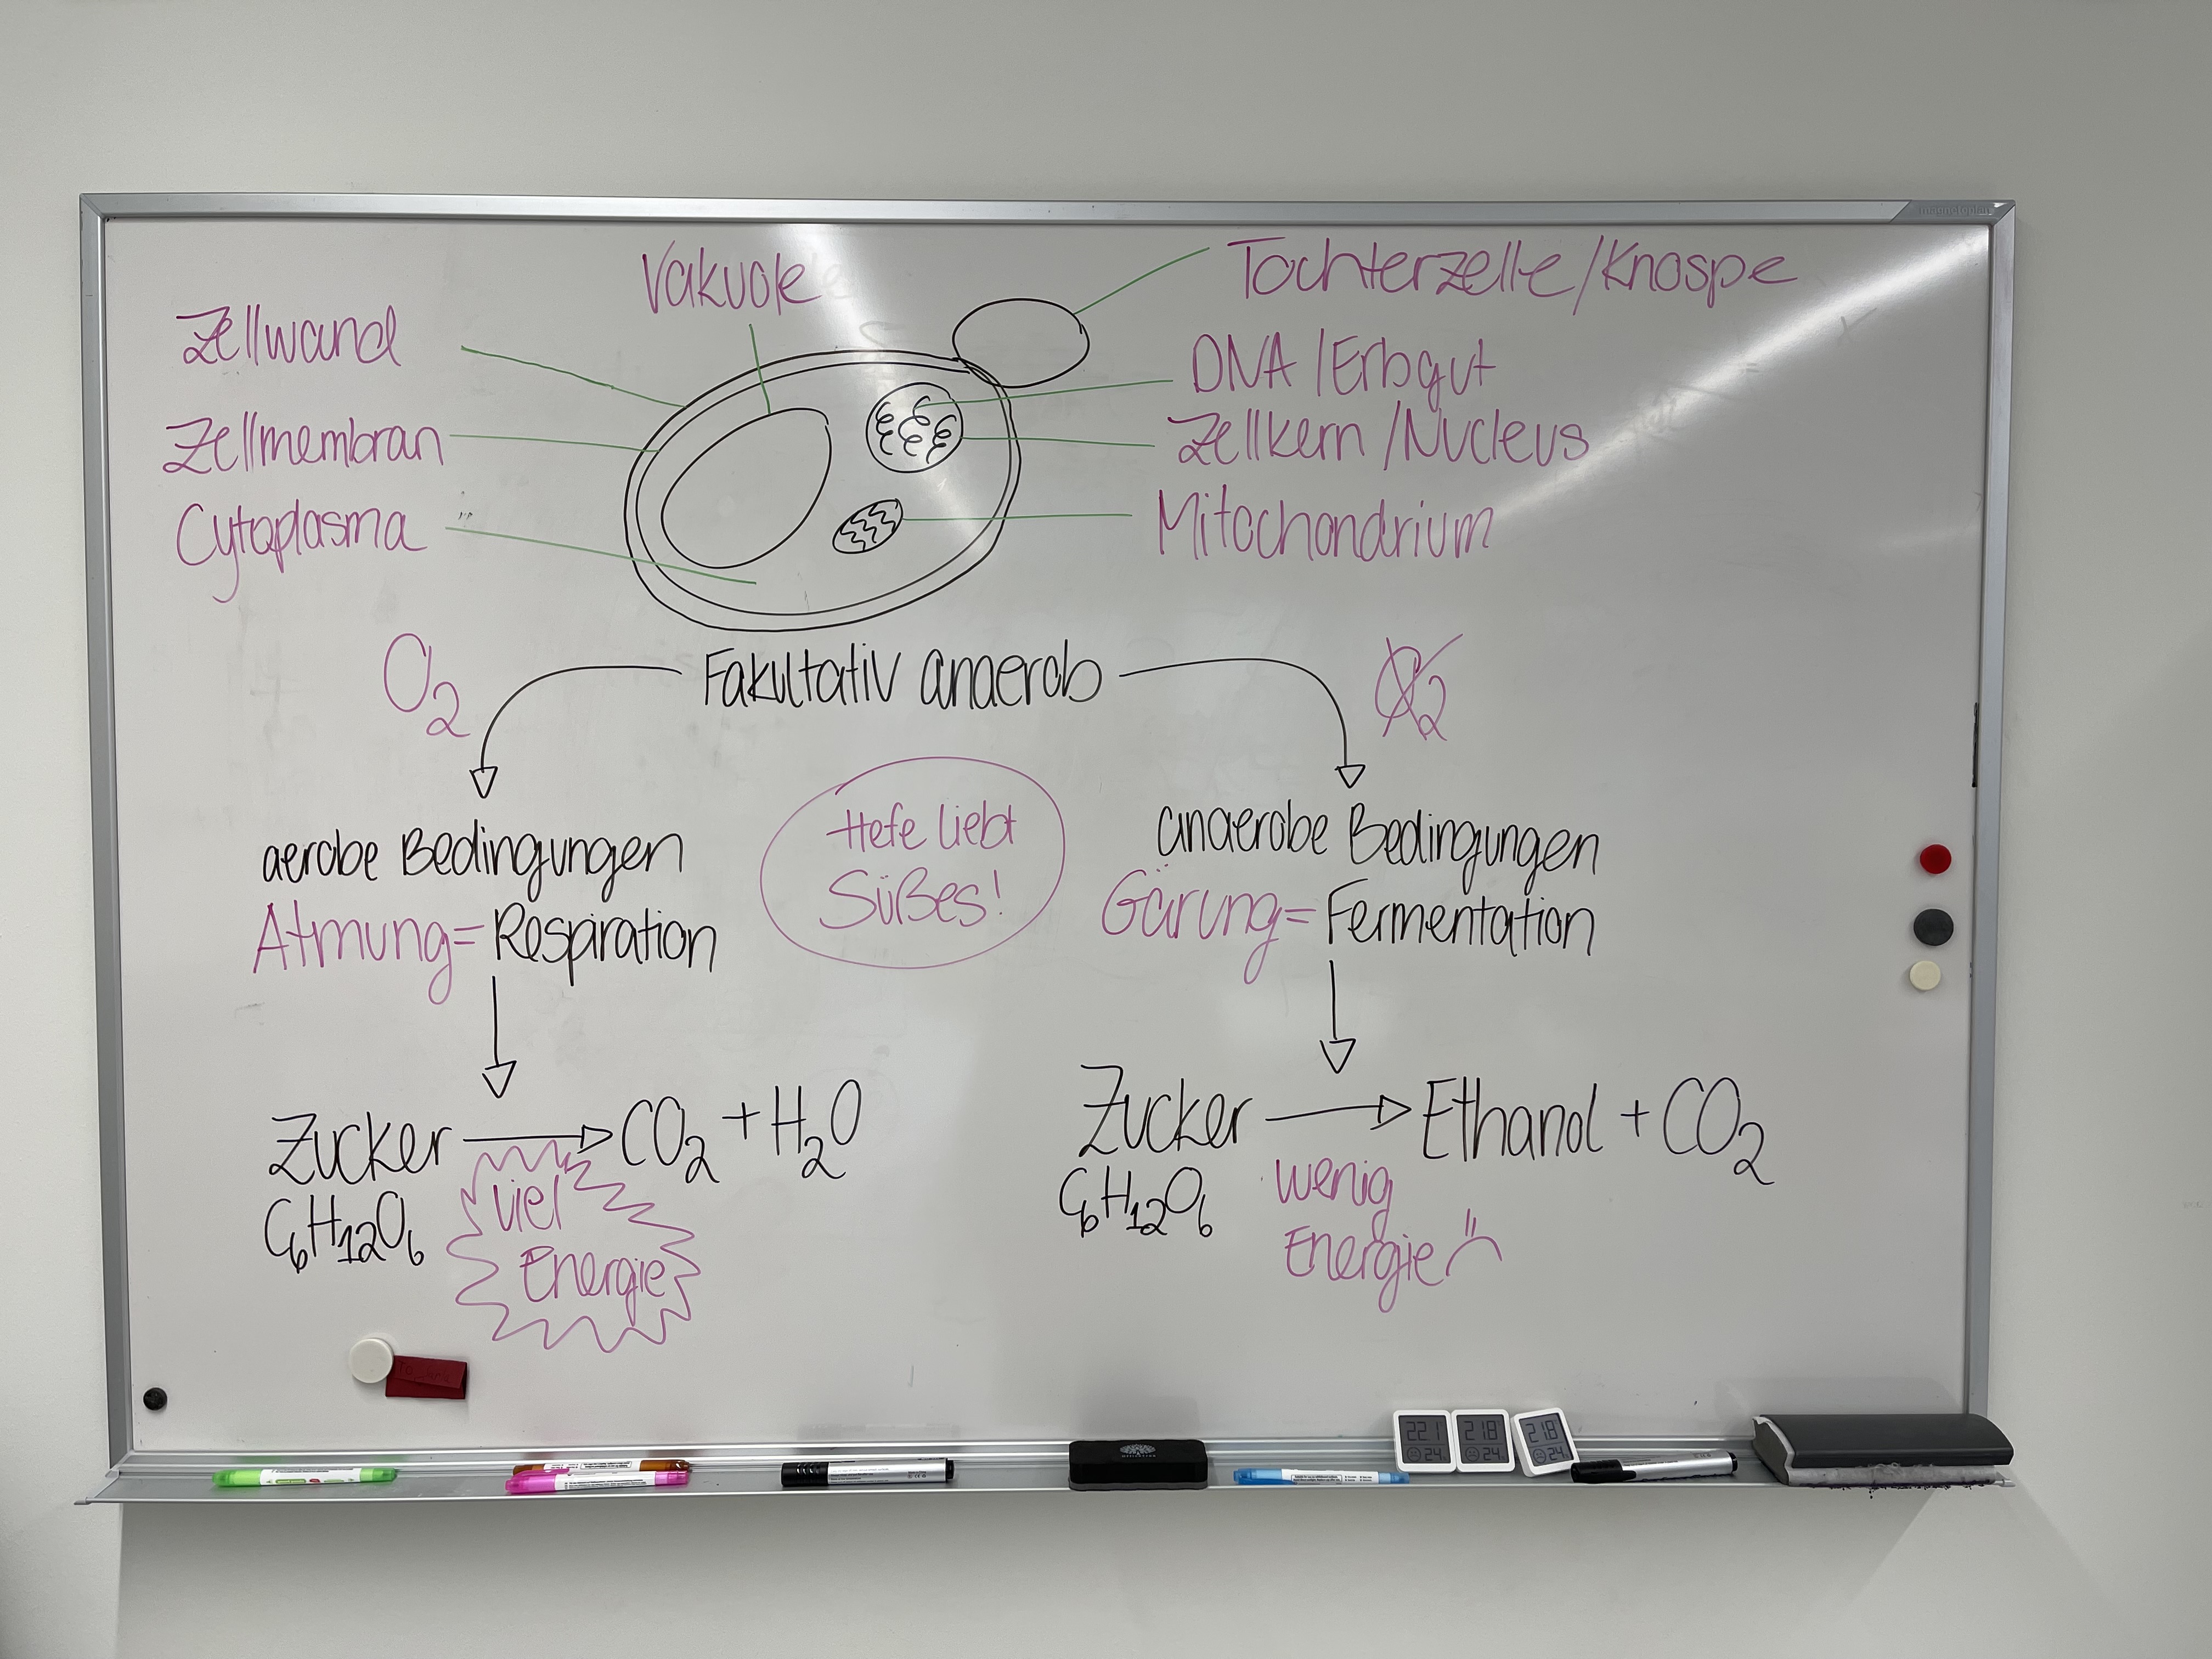 magnetoplan
Vakuole
Tochterzelle/Knospe
Zellwand
DNA/Erbgut
Zellmembran
Zellkern/Nucleus
Cytoplasma
Mitochondrium
O2
Fakultativ anaerob
O2
aerobe Bedingungen
Atmung=Respiration
Hefe liebt
Süßes!
anaerobe Bedingungen
Gärung=Fermentation
Zucker → CO2 + H2O
C6H12O6
viel
Energie
Zucker → Ethanol + CO2
C6H12O6
wenig
Energie
22.1
24
21.8
24
21.8
24